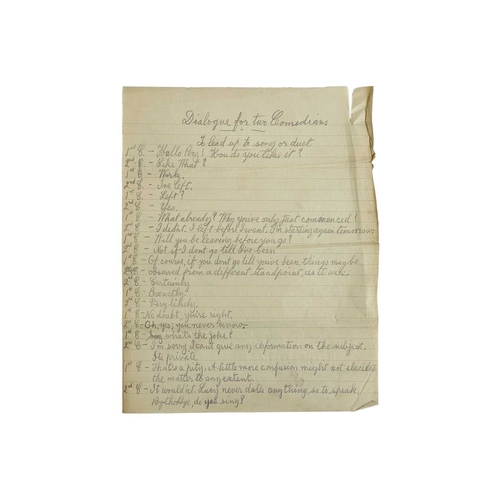 Dialogue for two Comedians
To lead up to song or duet
1st C - Hallo Org! How do you like it?
2nd C - Like What?
1st C - Work.
2nd C - I've left.
1st C - Left?
2nd C - Yes.
1st C - What already? Why you've only just commenced!
2nd C - I didn't. I left before I went. I'm starting again tomorrow.
1st C - Will you be leaving before you go?
2nd C - Not if I dont go till I've been
1st C - Of course, if you dont go till you've been, things may be
observed from a different standpoint, as it were.
Certainly.
Exactly.
Very likely.
No doubt, you're right.
Oh yes, you never know.
Say what's the joke?
C - I'm sorry I cant give any information on the subject.
Its private.
C - Thats a pity. A little more confusion might not
the matter to any extent.
2nd C - It wouldnt then never date anything, so to speak
By-the-bye, do you sing?